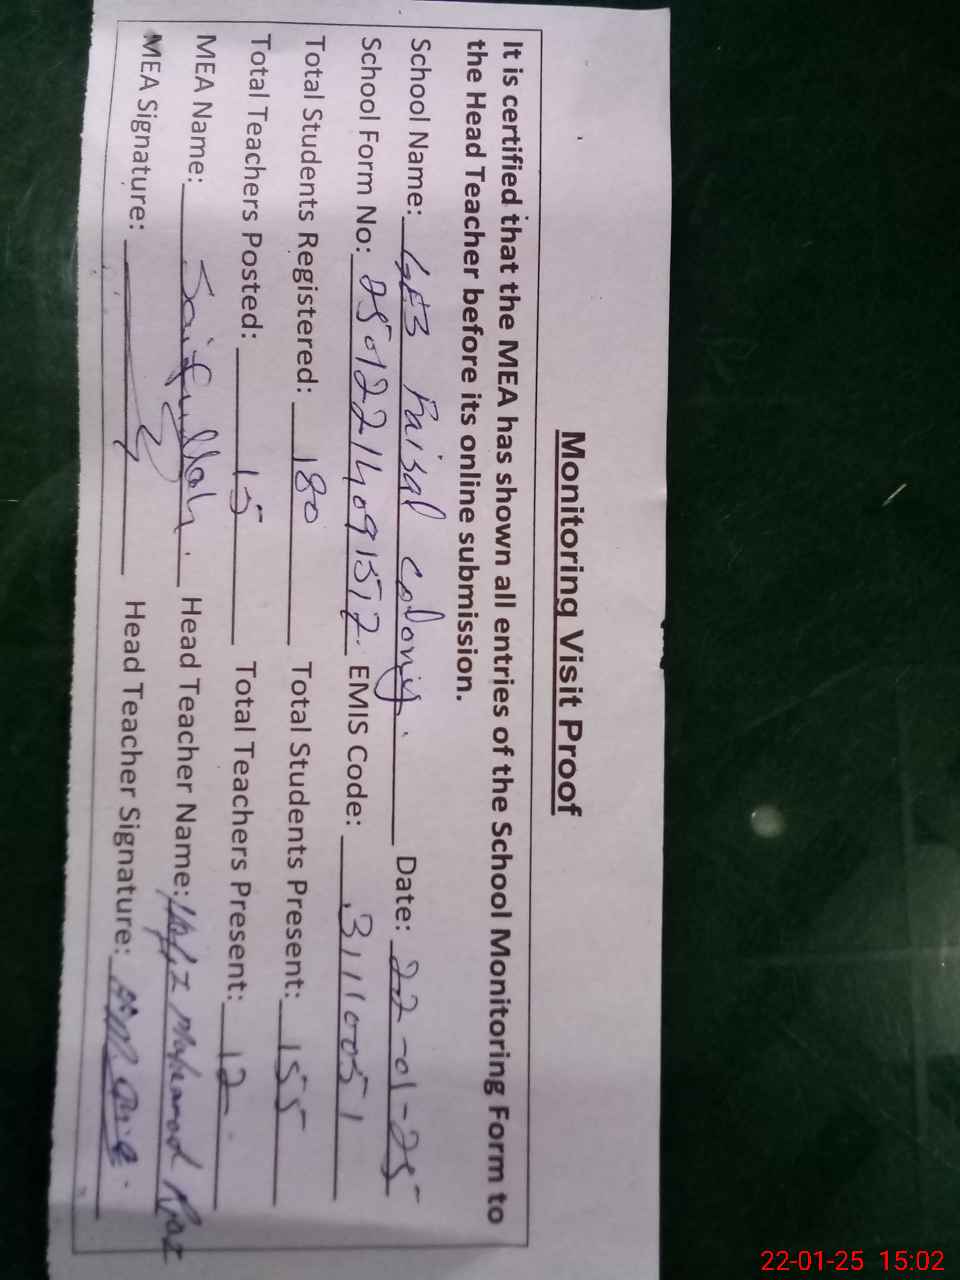 Monitoring Visit Proof
It is certified that the MEA has shown all entries of the School Monitoring Form to
the Head Teacher before its online submission.
School Name: colony. Date: 22-01-25
School Form No: 25012214091512. EMIS Code: 31110051
Total Students Registered: 180 Total Students Present: 155
Total Teachers Posted: 15 Total Teachers Present: 12
MEA Name: Saifullah. Head Teacher Name:
MEA Signature: Head Teacher Signature:
22-01-25 15:02